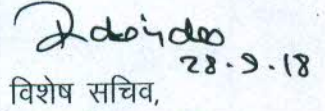 28.9.18
विशेष सचिव,